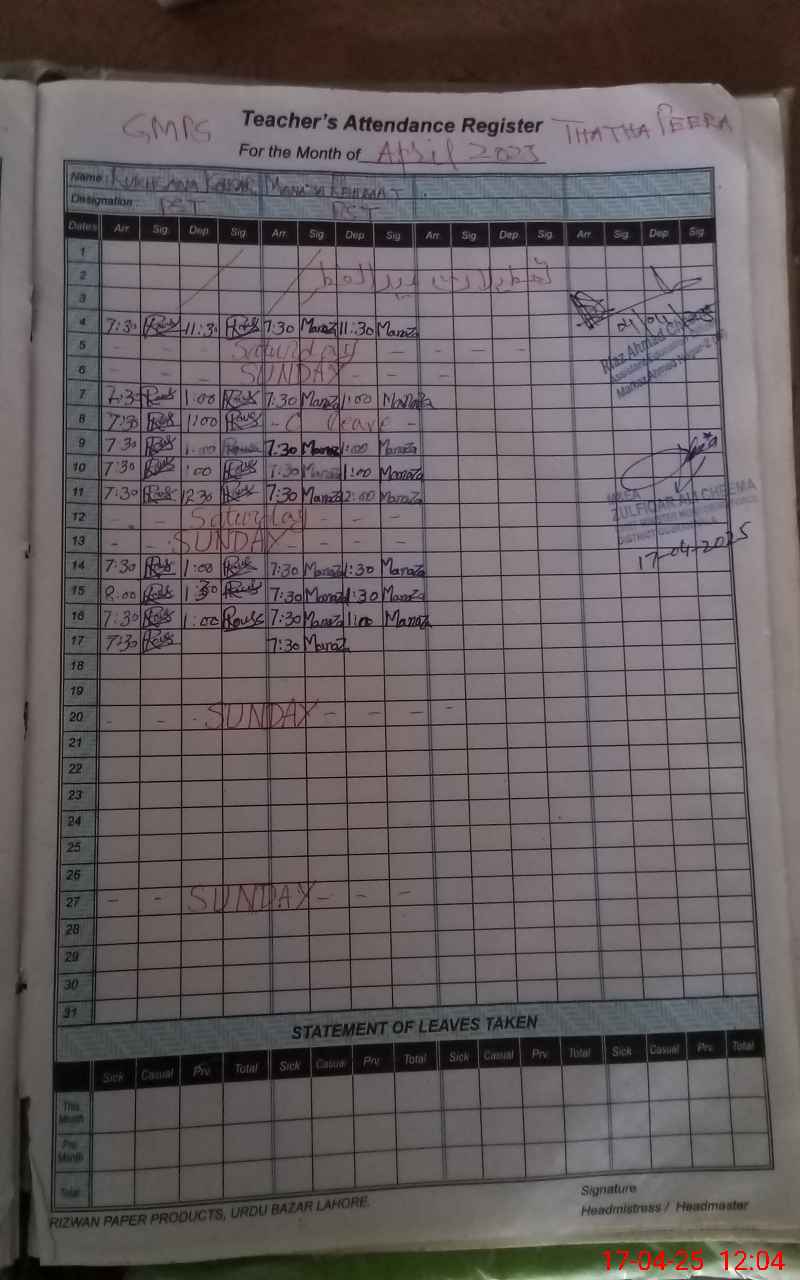 GMPS Teacher's Attendance Register THATHA PEERA
For the Month of April 2025
Name: RUKHSANA KOUSAR MANAZA REHMAT
Designation: PST PST
Dates Arr. Sig. Dep. Sig. Arr. Sig. Dep. Sig. Arr. Sig. Dep. Sig. Arr. Sig. Dep. Sig.
1
2 تعطیلات عیدالفطر
3
4 7:30 Rous 11:30 Rous 7:30 Manaza 11:30 Manaza 04/04/2025
5 - - Saturday - - - -
Riaz Ahmad Cheema
6 - - SUNDAY - - -
7 7:30 Rous 1:00 Rous 7:30 Manaza 1:00 Manaza
8 7:30 Rous 1:00 Rous - C leave -
9 7:30 Rous 1:00 Rous 7:30 Manaza 1:00 Manaza
10 7:30 Rous 1:00 Rous 7:30 Manaza 1:00 Manaza
11 7:30 Rous 12:30 Rous 7:30 Manaza 12:00 Manaza
MEA
ZULFIQAR ALI CHEEMA
12 - - Saturday - - -
13 - - SUNDAY - - - -
17-04-2025
14 7:30 Rous 1:00 Rous 7:30 Manaza 1:30 Manaza
15 8:00 Rous 1:30 Rous 7:30 Manaza 1:30 Manaza
16 7:30 Rous 1:00 Rous 7:30 Manaza 1:00 Manaza
17 7:30 Rous 7:30 Manaza
18
19
20 - - - SUNDAY - - - -
21
22
23
24
25
26
27 - - SUNDAY - - -
28
29
30
31
STATEMENT OF LEAVES TAKEN
Sick Casual Prv. Total Sick Casual Prv. Total Sick Casual Prv. Total Sick Casual Prv. Total
This Month
Pre Month
Total
Signature
RIZWAN PAPER PRODUCTS, URDU BAZAR LAHORE. Headmistress / Headmaster
17-04-25 12:04